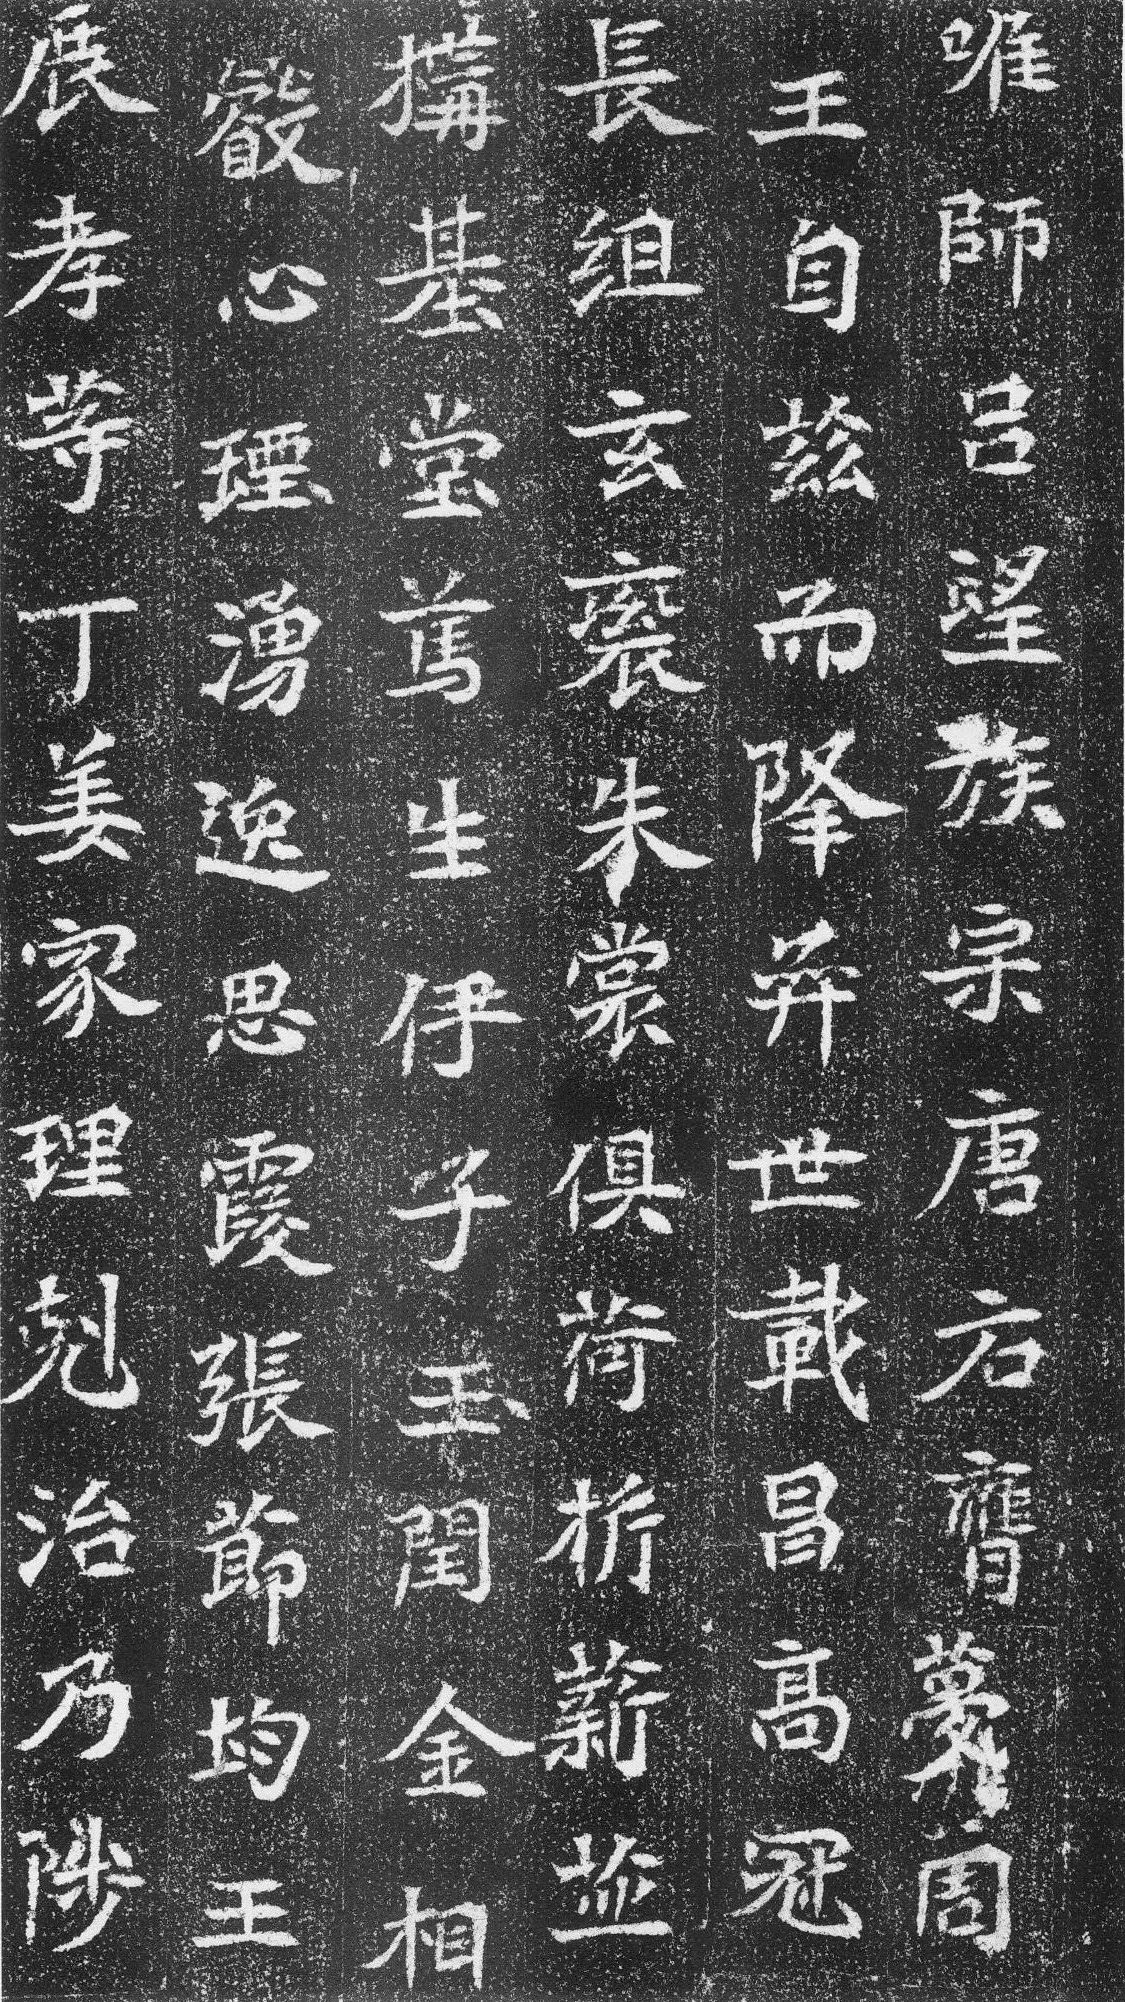 唯師吕望族宗唐右胥夢周
王自兹而降弈世載昌高冠
長组玄衮朱裳俱荷析薪並
搆基堂篤生伊子玉閏金相
叡心理湧逸思霞張節均王
展孝等丁姜家理剋治乃陟